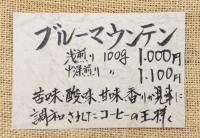 ブルーマウンテン
浅煎り 100g 1.000円
中深煎り 〃 1.100円
苦味 酸味 甘味 香りが見事に
調和されたコーヒーの王様